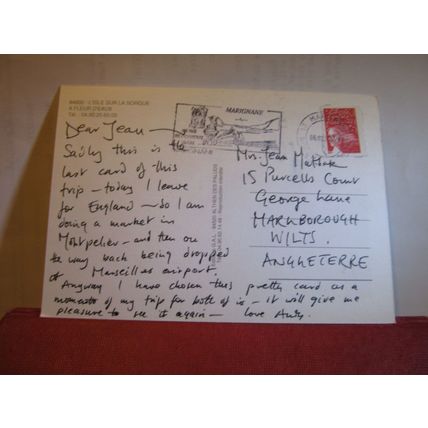 84800 - L'ISLE SUR LA SORGUE
A FLEUR D'EAUX
MARIGNANE
Dear Jean -
Sadly this is the
last card of this
trip - today I leave
for England - so I am
doing a market in
Montpelier - and then on
the way back being dropped
at Marseillas airport.
Anyway I have chosen this pretty card as a
momento of my trip for both of us - it will give me
pleasure to see it again - love
Mrs. Jean
15 Purcells Court
George Lane
MARLBOROUGH
WILTS.
ANGLETERRE